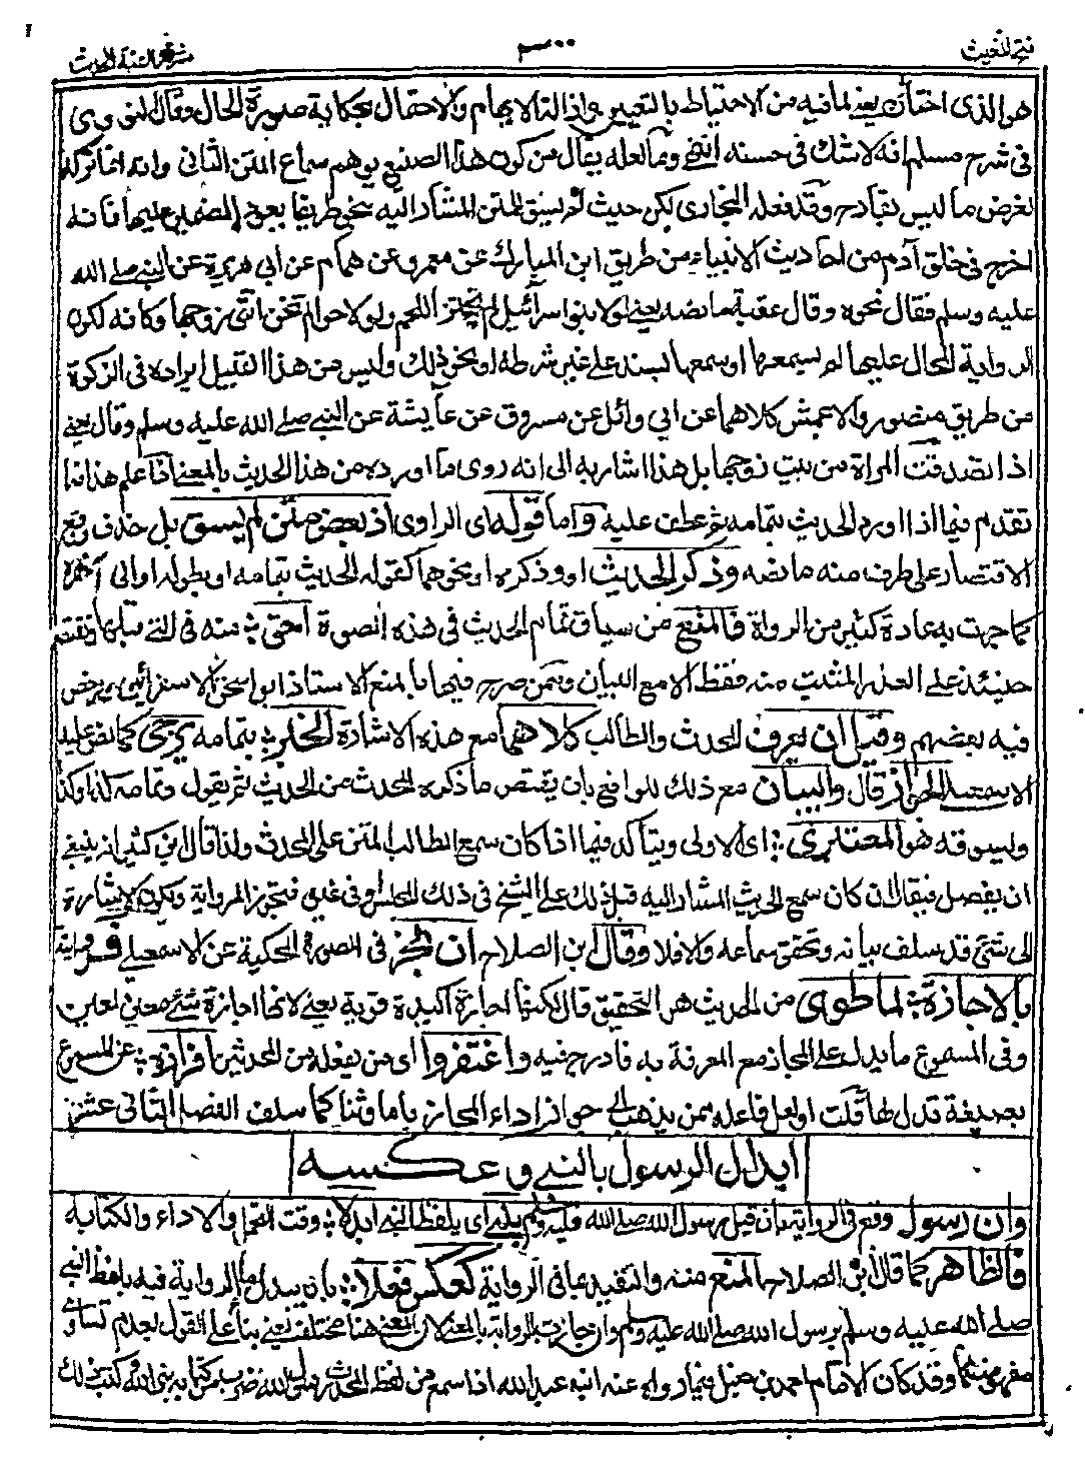 فتح المغيث
٣٠٠
شرح الفية الحديث
هو الذى اختاره يعنى لما فيه من الاحتياط بالتعيين وازالة الايهام والاحتمال بحكاية صورة الحال وقال النووى
فى شرح مسلم انه لاشك فى حسنه انتهى وما لعله يقال من كون هذا الصنيع يوهم سماع المتن الثانى وانه انما تركه
لغرض ما ليس بقادح وقد فعله البخارى لكن حيث لم يسبق المتن المشار اليه فانه
اخرج فى خلق آدم من احاديث الانبياء من طريق ابن المبارك عن معمر عن همام عن ابى هريرة عن النبى صلى الله
عليه وسلم فقال نحوه وقال عقبة ما نصه يعنى لولا بنو اسرائيل لم يخنز اللحم ولولا حوا لم تخن انثى زوجها وكانه لكون
الرواية المحال عليها لم يسمعها او سمعها بسند على غير شرطه او نحو ذلك وليس من هذا القبيل ايراده فى الزكوة
من طريق منصور والاعمش كلاهما عن ابى وائل عن مسروق عن عايشة عن النبى صلى الله عليه وسلم وقال يعنى
اذا تصدقت المراة من بيت زوجها بل هذا اشار به الى انه روى ما اورده من هذا الحديث بالمعنى اذا علم هذا فما
تقدم فيما اذا اورد الحديث بتمامه ثم عطف عليه واما قوله اى الراوى اذ بعض متن لم يسق بل حذف وقع
الاقتصار على طرف منه ما نصه وذكر الحديث او وذكره او نحوهما كقوله الحديث بتمامه او بطوله او الى آخره
كما جرت به عادة كثير من الرواة فالمنع من سياق تمام الحديث فى هذه الصورة احق منه فى التى قبلها فيقتصر
حينئذ على القدر المثبت منه فقط الا مع البيان وممن صرح فيها بالمنع الاستاذ ابو اسحق الاسفرائينى ورخص
فيه بعضهم وقيل ان يعرف المحدث والطالب كلاهما مع هذه الاشارة الخبر بتمامه يرجى كما نص عليه
الاسمعيلى الجواز قال والبيان مع ذلك للواقع بان يقتص ما ذكره المحدث من الحديث ثم يقول وتمامه كذا وكذا
ويسوقه هو المعتبرى اى الاولى ويتاكد فيما اذا كان سمع الطالب المتن على المحدث ولذا قال ابن كثير انه ينبغى
ان يفصل فيقال ان كان سمع الحديث المشار اليه قبل ذلك على الشيخ فى ذلك المجلس او فى غيره فتجوز الرواية وتكون الاشارة
الى شئ قد سلف بيانه وتحقق سماعه والا فلا وقال ابن الصلاح ان نجز فى الصورة المحكية عن الاسمعيلى فروايته
بالاجازة لما طوى من الحديث هو التحقيق قال لكنها اجازة اكيدة قوية يعنى لانها اجازة شئ معين لمعين
وفى المسموع ما يدل على المجاز مع المعرفة به فادرج فيه واغتفروا اى من يفعله من المحدثين افرازه عن المسموع
بصيغة تدل لها قلت او لعل فاعله ممن يذهب الى جواز اداء المجاز باما وثنا كما سلف الفصل الثانى عشر
ابدال الرسول بالنبى وعكسه
وان رسول وقع فى الرواية بان قيل رسول الله صلى الله عليه وسلم بنبى اى بلفظ النبى ابدلا وقت التحمل والاداء والكتابة
فالظاهر كما قال ابن الصلاح المنع منه والتقيد بما فى الرواية كعكس فعلا بان يبدل ما الرواية فيه بلفظ النبى
صلى الله عليه وسلم برسول الله صلى الله عليه وسلم وان جازت الرواية بالمعنى لان المعنى هنا مختلف يعنى بناء على القول بعدم تساوى
مفهوميهما وقد كان الامام احمد بن حنبل فيما رواه عنه ابنه عبد الله اذا سمع من لفظ المحدث رسول الله ضرب من كتابه نبى الله وكتب ذلك